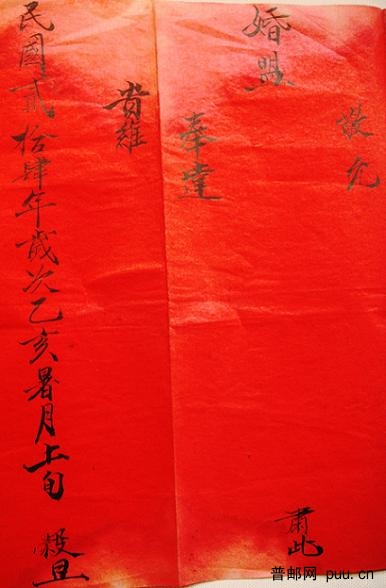 允
婚盟
肅此
奉達
貴
民國貳拾肆年歲次乙亥暑月上旬 穀旦
普邮网 puu.cn